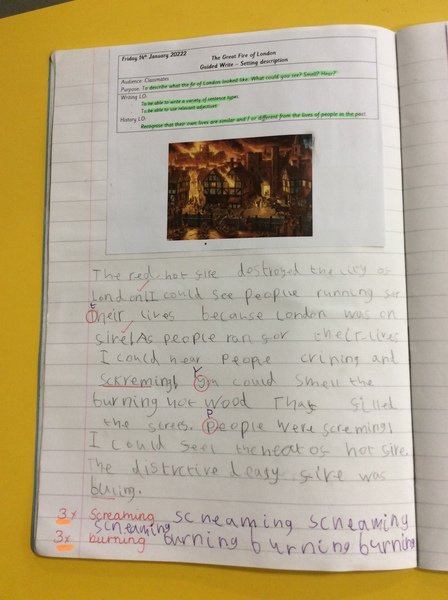 Friday 14th January 20222
The Great Fire of London
Guided Write – Setting description
Audience: Classmates
Purpose: To describe what the fir of London looked like. What could you see? Smell? Hear?
Writing LO:
To be able to write a variety of sentence types
To be able to use relevant adjectives
History LO:
Recognise that their own lives are similar and / or different from the lives of people in the past
The red-hot fire destroyed the city of
London! I could see people running for
t
Their lives because London was on
fire! As people ran for their lives
I could hear people crining and
Y
sckreming! you could smell the
burning hot wood That filled
P
the strees. people were screming!
I could feel the heat of hot fire.
The distrctive deasy fire was
buring.
3x screaming screaming screaming
screaming
3x burning burning burning burning